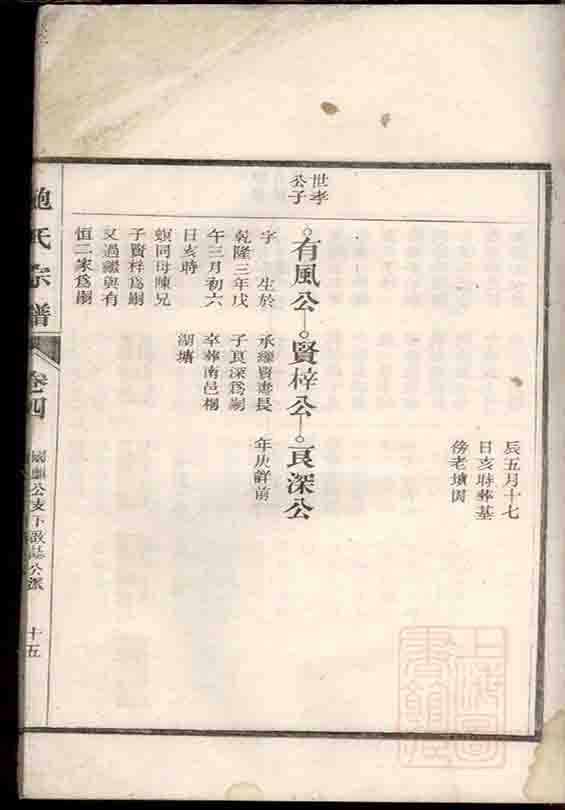 辰五月十七
日亥時葬基
傍老墳図
世孝
公子
有風公
賢梓公
良深公
字 生於
乾隆三年戊
午三月初六
日亥時
螟同母陳兄
子賢梓為嗣
又過繼與有
恒二家為嗣
承繼賢妻長
子良深為嗣
卒葬南邑楊
湖塘
年庚詳前
鮑氏宗譜
卷四
公支下啟
公派
十五
上海圖
書館藏